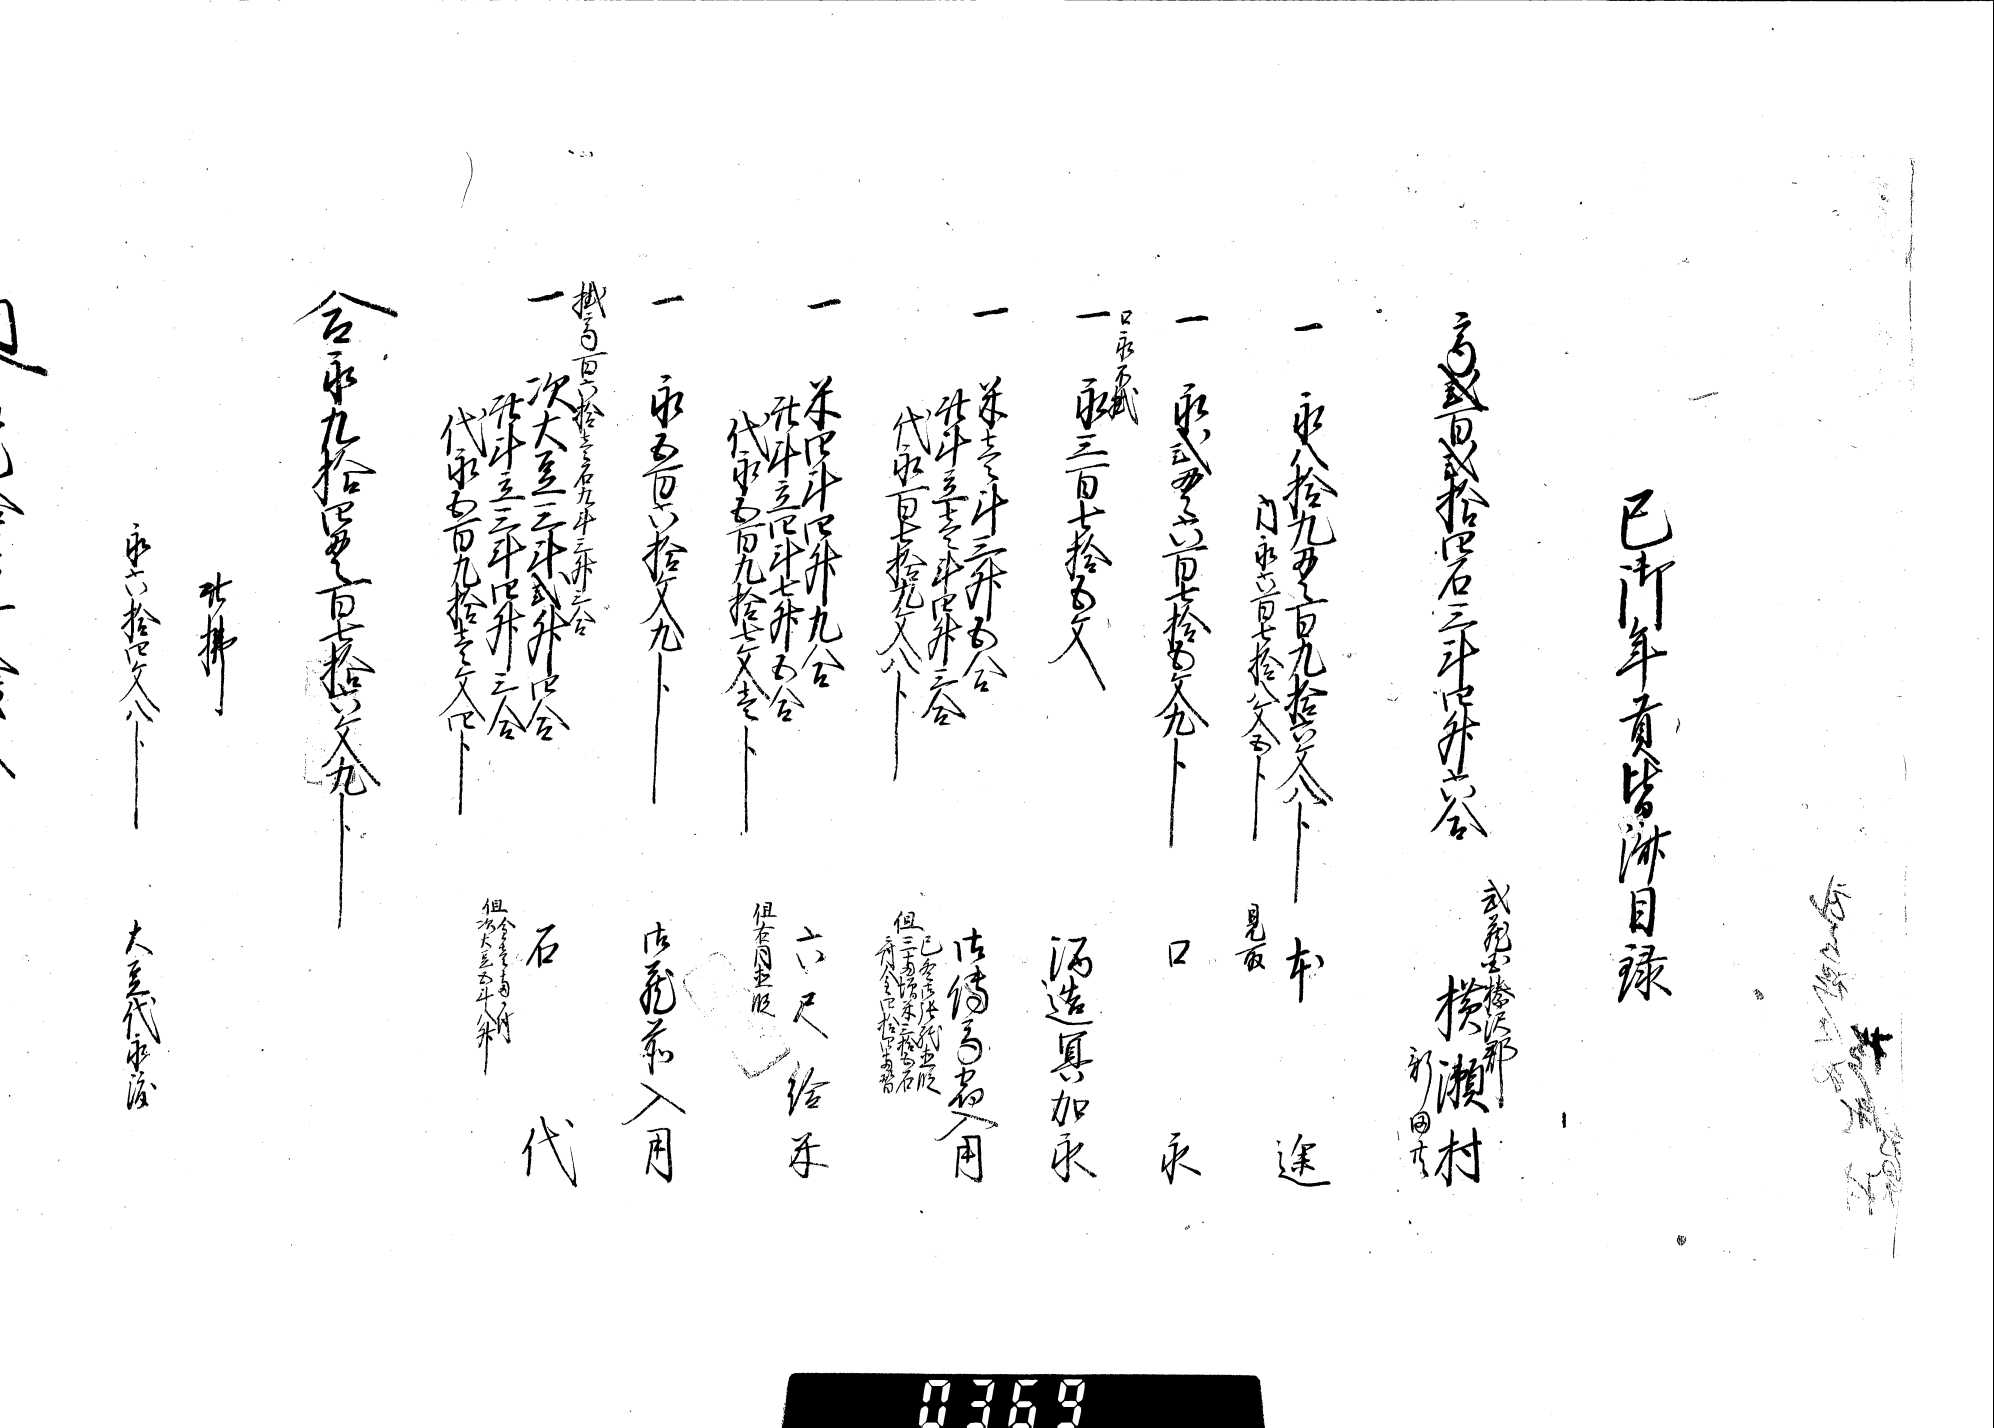 巳御年貢皆済目録
武蔵国榛沢郡
高弐百弐拾四石三斗四升六合
横瀬村
新田共
一 永八拾九貫百九拾六文八分 本途
内永六百七拾八文五分 見取
一 永弐貫六百七拾五文九分 口永
口永不掛
一 永三百七拾五文 酒造冥加永
一 米壱斗三升五合 御伝馬宿入用
此斗立壱斗四升三合
代永百七拾九文八分
但
一 米四斗四升九合 六尺給米
此斗立四斗七升五合
代永五百九拾七文壱分
但右同直段
一 永五百六拾文九分 御蔵前入用
掛高百六拾壱石九斗三升三合
一 次大豆三斗弐升四合 石代
此斗立三斗四升三合
代永五百九拾壱文四分
但金壱両ニ付
次大豆五斗八升
合永九拾四貫百七拾六文九分
此払
永六拾四文八分 大豆代永渡
0369